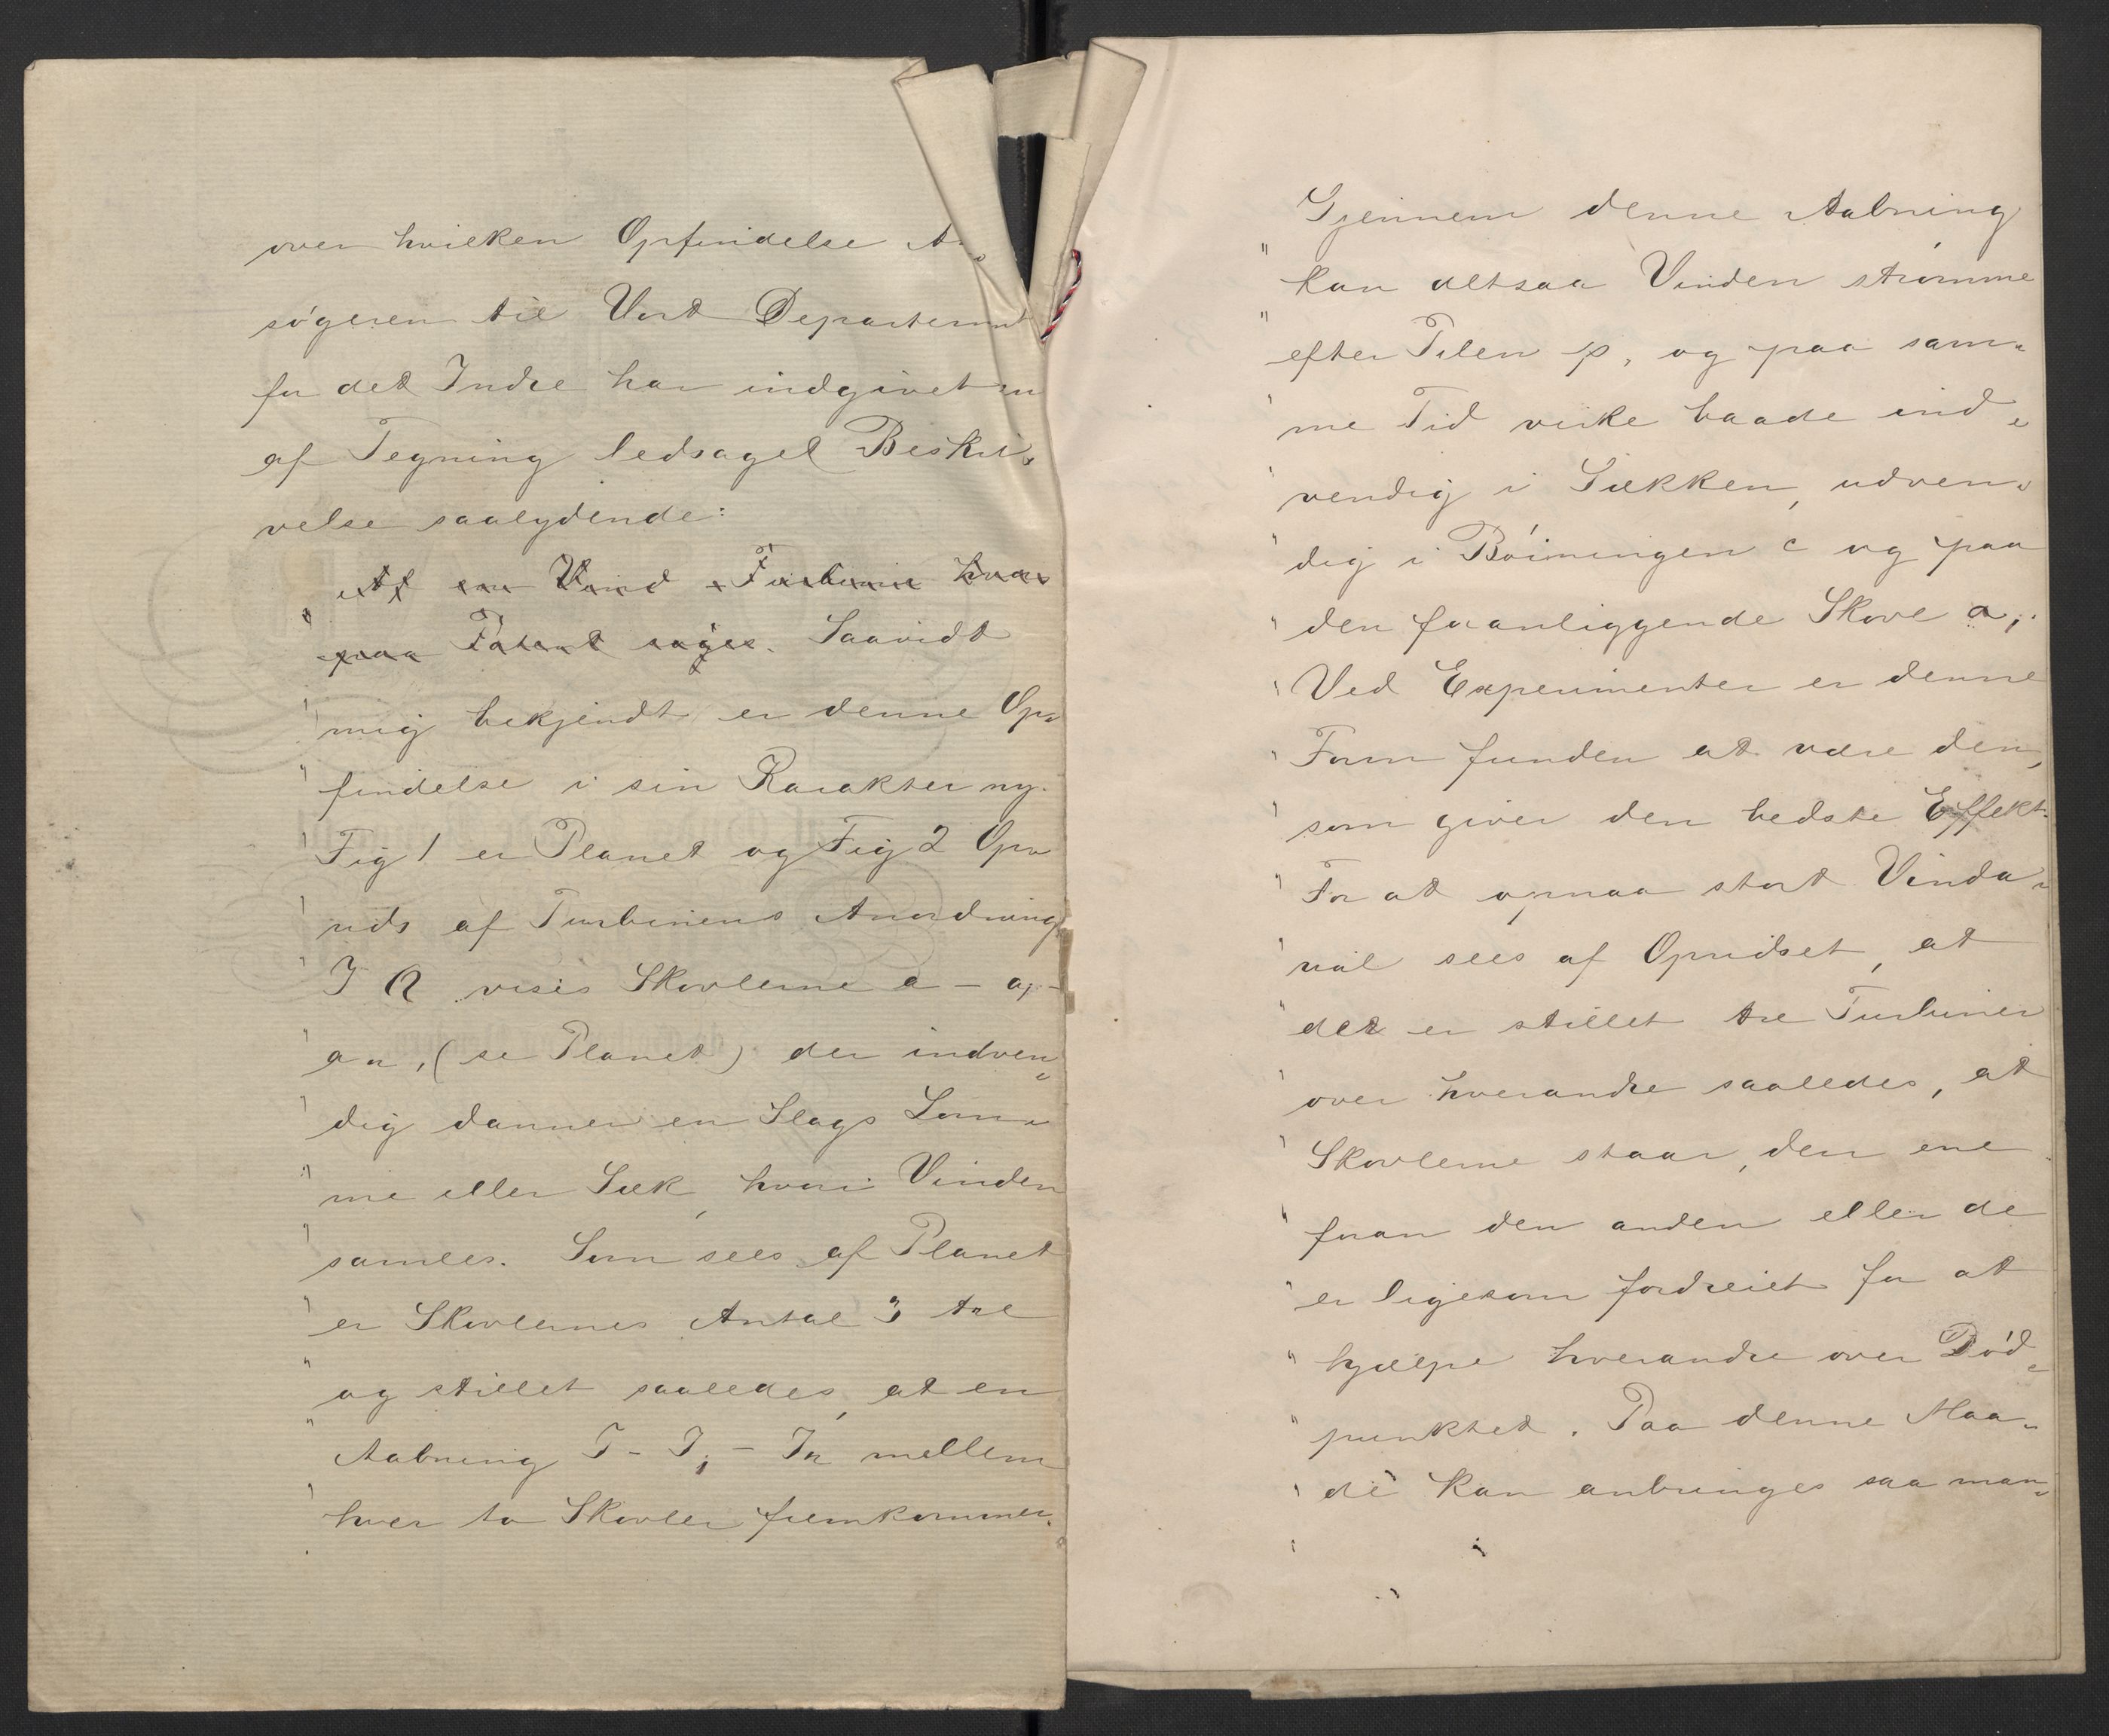 over hvilken Opfindelse An„
søgeren til Vort Departement
for det Indre har indgivet en
af Tegning ledsaget Beskri„
velse saalydende:
Af en Vind - Turbine hvor
„ paa Patent søges. Saavidt
„ mig bekjendt er denne Op„
„ findelse i sin Karakter ny.
„ Fig 1 er Planet og Fig 2 Op„
„ rids af Turbinens Anordning
„ I A vises Skovlerne a - a,-
„ a„, (se Planet) der indven„
„ dig danner en Slags Lom„
„ me eller Sæk, hvori Vinden
„ samles. Som sees af Planet
„ er Skovlernes Antal 3 tre
„ og stillet saaledes, at en
„ Aabning I - I, - I„ mellem
„ hver to Skovler fremkommer.
Gjennem denne Aabning
„ kan altsaa Vinden strømme
„ efter Pilen p, og paa sam„
„ me Tid virke baade ind„
„ vendig i Sækken, udven„
„ dig i Bøiningen c og paa
„ den foranliggende Skovl a,.
„ Ved Experimenter er denne
„ Form funden at være den,
„ som giver den bedste Effekt.
„ For at opnaa stort Vinda„
„ real sees af Opridset, at
„ det er stillet tre Turbiner
„ over hverandre saaledes, at
„ Skovlerne staar, den ene
„ foran den anden eller de
„ er ligesom fordreiet for at
„ hjælpe hverandre over Død„
„ punktet. Paa denne Maa„
„ de kan anbringes saa man„